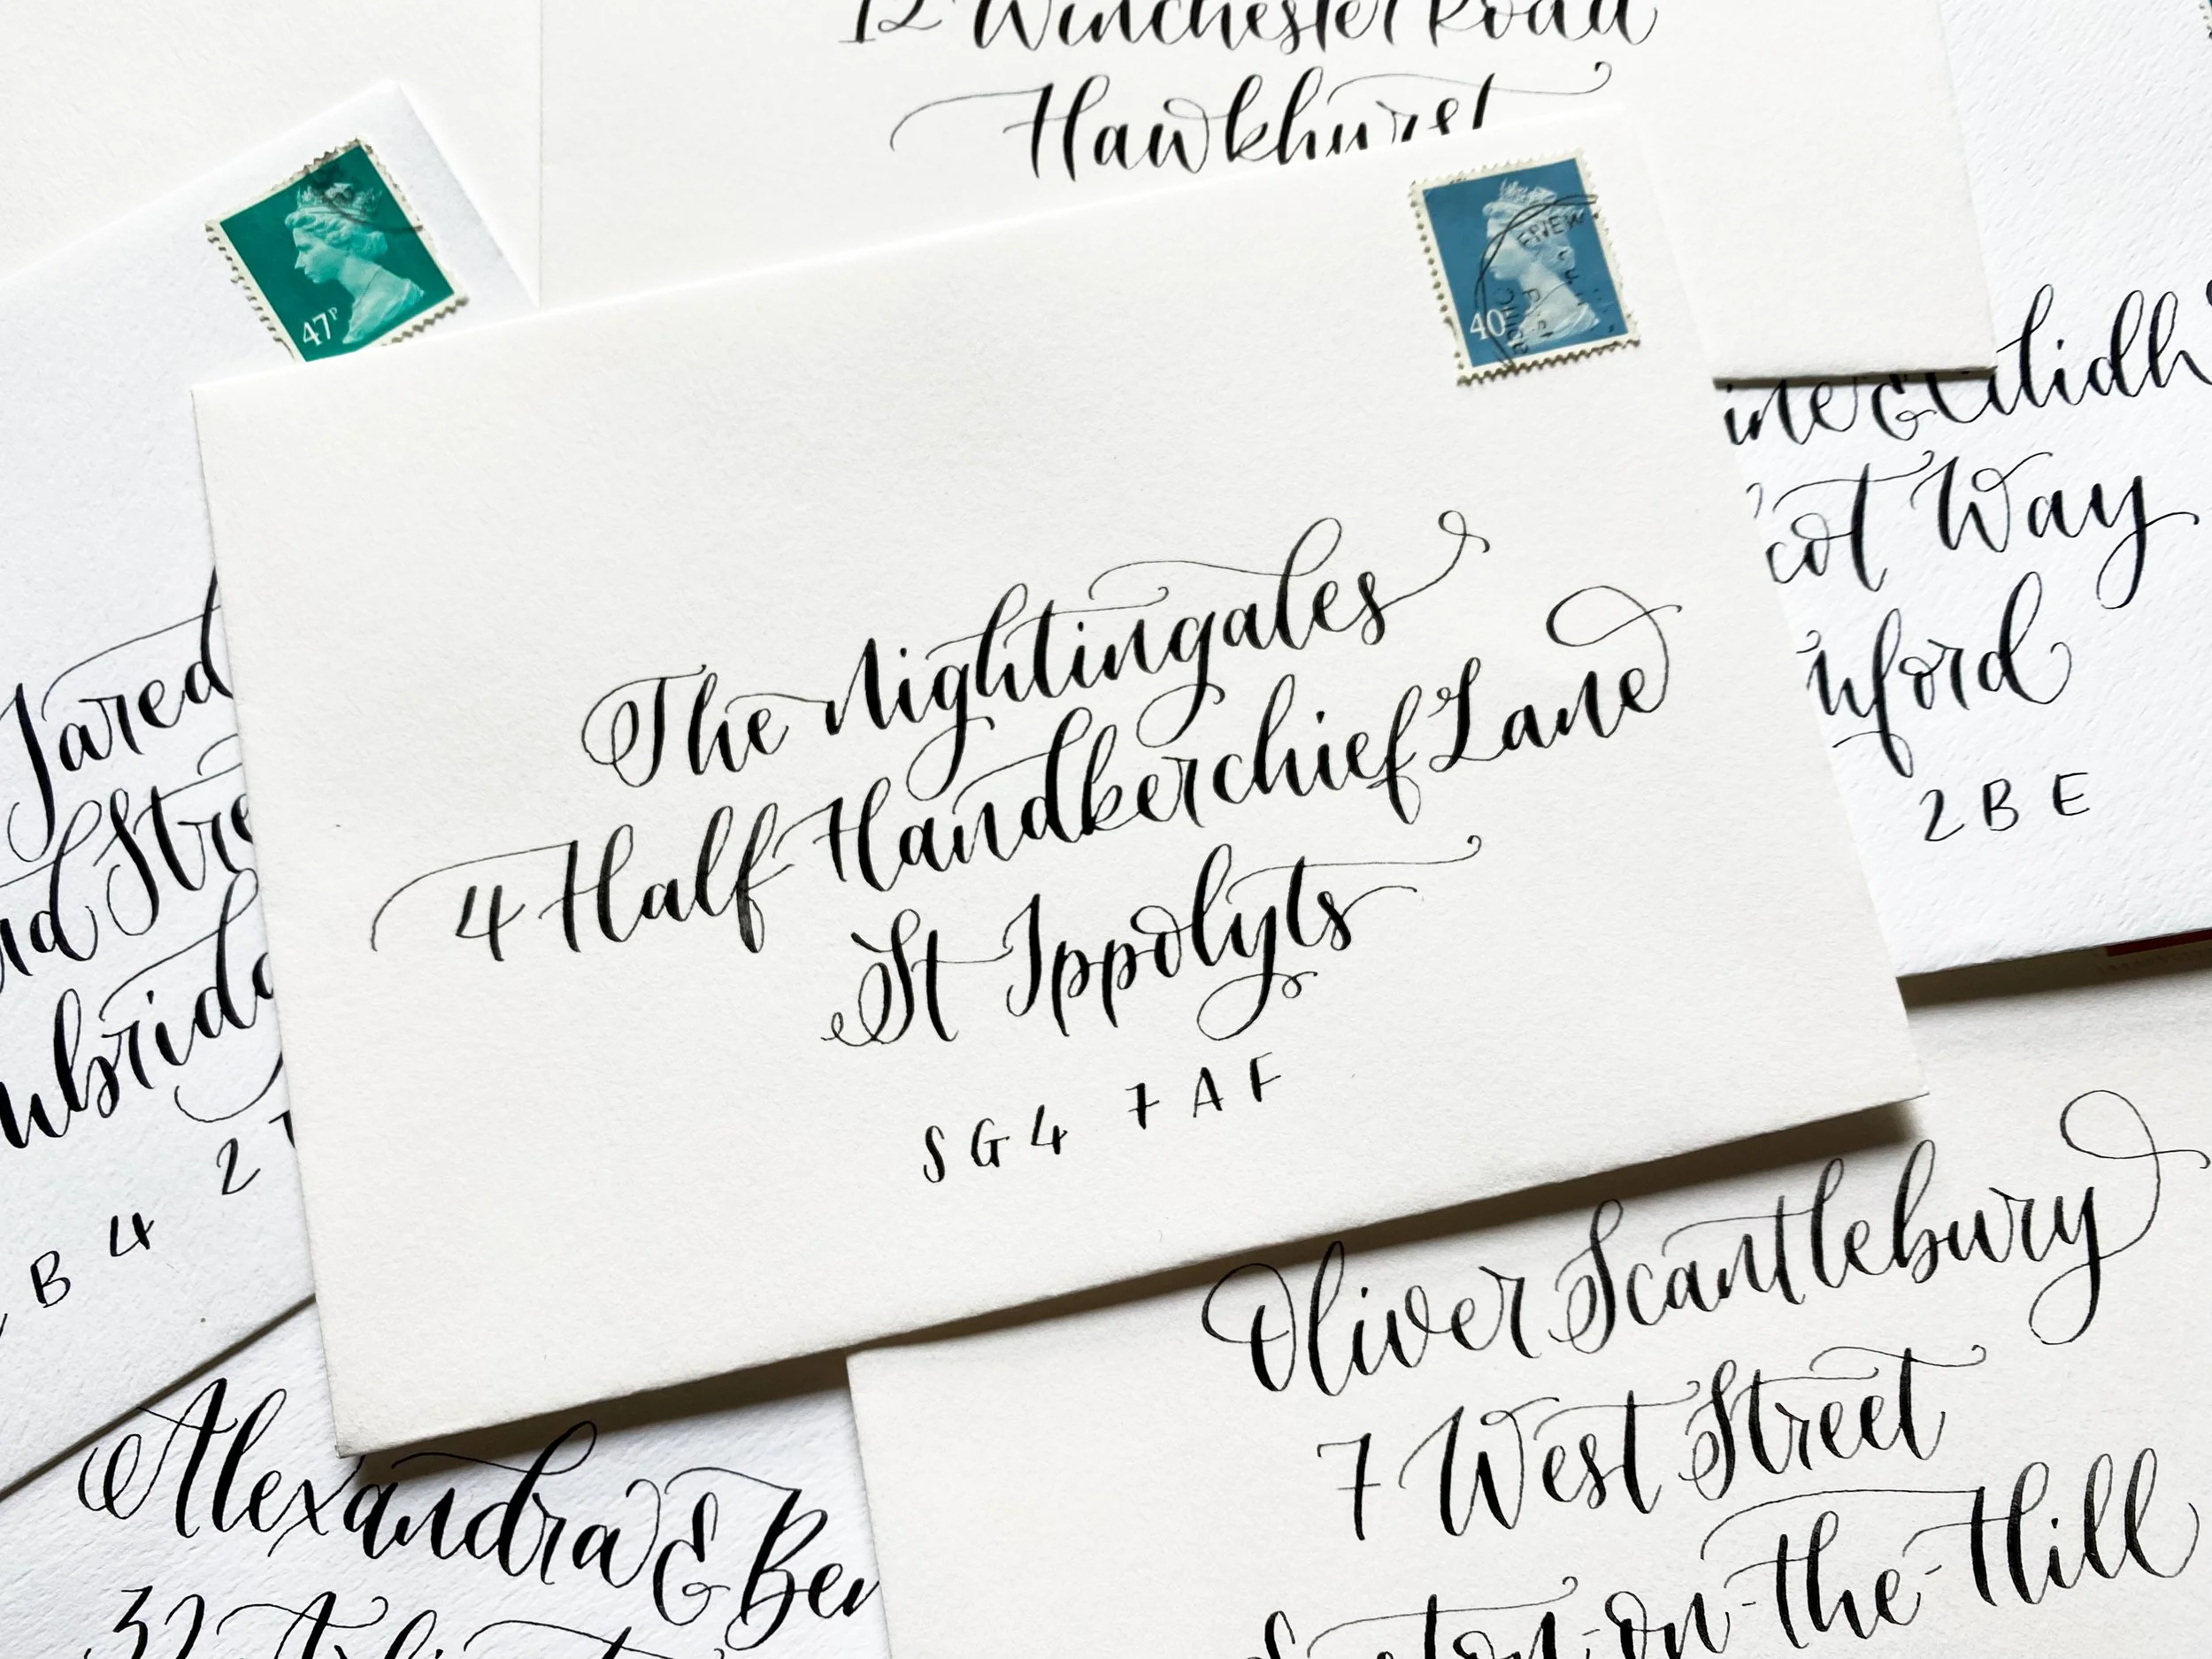 12 Winchester Road
Hawkhurst
47P
40
The Nightingales
4 Half Handkerchief Lane
St Ippolyts
SG4 7AF
Jared
Way
2BE
2
B 4
Oliver Scantlebury
7 West Street
on-the-Hill
Alexandra & Ben
32